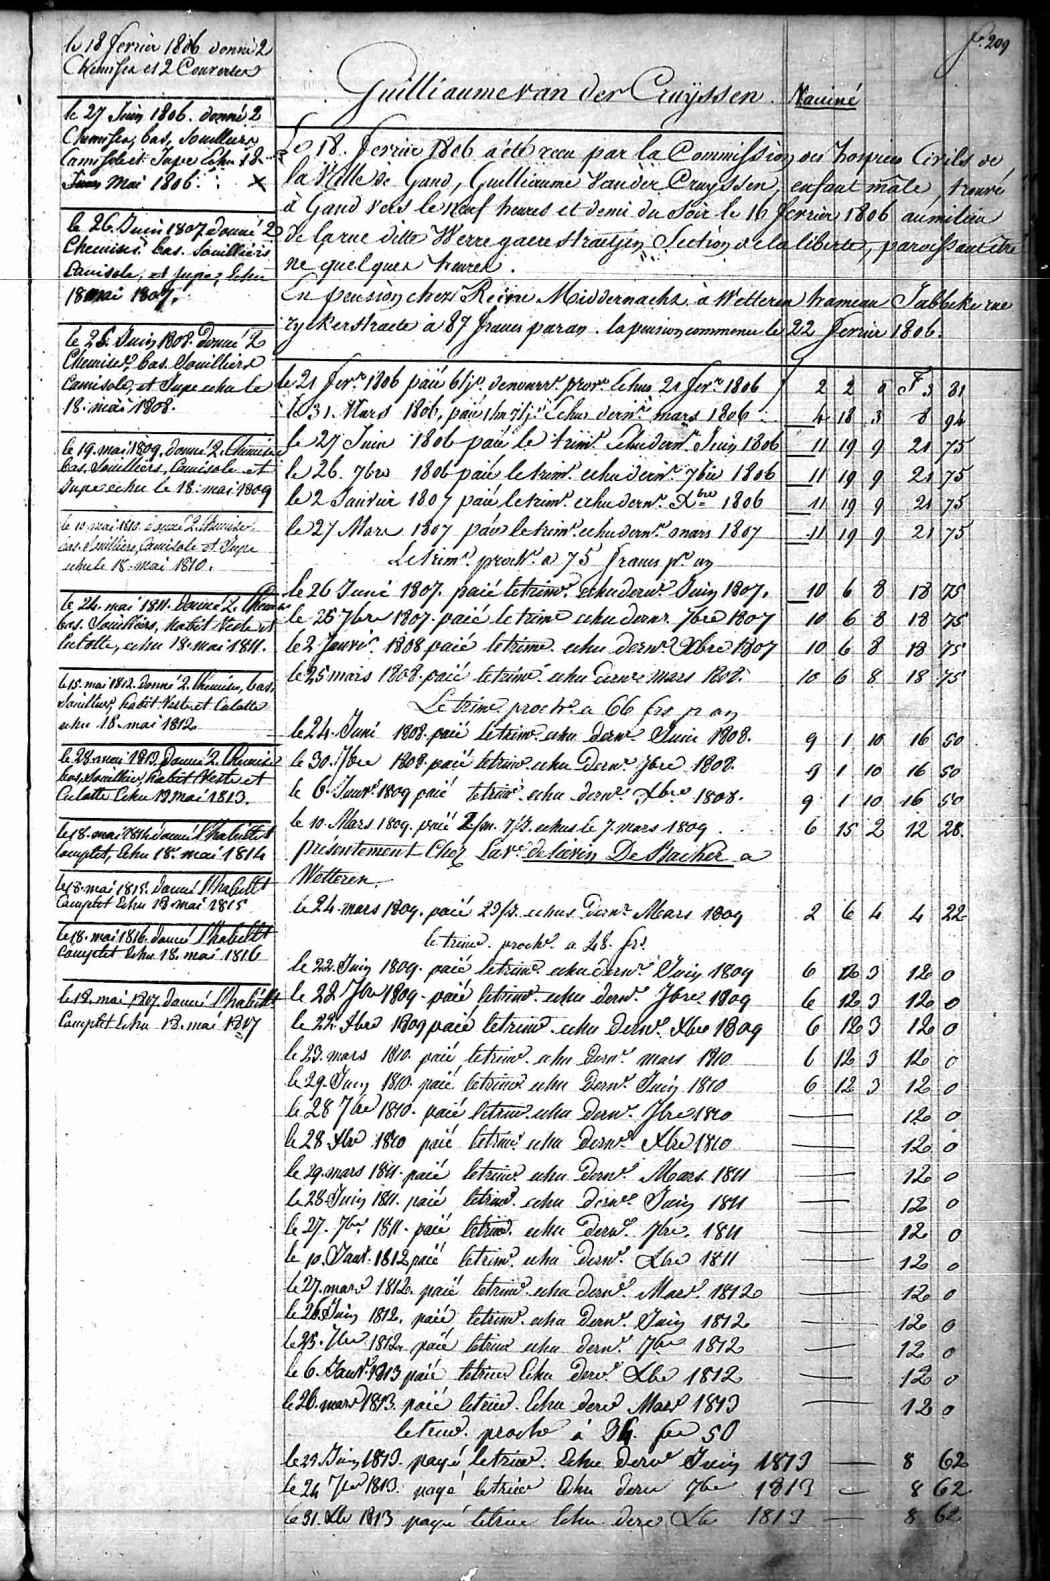 f. 209
le 18 fevrier 1806 donné 2
Chemises et 2 Couvertes
le 27 Juin 1806. donné 2
Chemises, bas, Souilliers
Camisole et Jupe Echu 18
Mai 1806. X
le 26. Juin 1807 donné 2
Chemises bas. Souilliers
Camisole, et Jupe, Echu
18 mai 1807.
le 25 Juin 1808. donné 2
Chemises, bas. Souilliers
Camisole, et Jupe echu le
18. mai 1808.
le 19. mai 1809. donné 2. Chemises
bas. Souilliers, Camisole et
Jupe echu le 18. mai 1809
le 10 mai 1810. donné 2. Chemises
bas. Souilliers, Camisole et Jupe
echu le 18. mai 1810.
le 24. mai 1811. donné 2. Chemises
bas. Souilliers, habit Veste et
Culotte, echu 18. mai 1811.
le 15. mai 1812. donné 2. Chemises, bas.
Souilliers, habit Veste et Culotte
echu 18. mai 1812
le 28. mai 1813. donné 2. Chemises
bas, Souilliers, habit Veste et
Culotte Echu 18 mai 1813.
le 18. mai 1814 donné l'habillt
complet, Echu 18. mai 1814
le 18. mai 1815. donné l'habillt
Complet Echu 18 mai 1815
le 18. mai 1816. donné l'habillt
complet Echu 18. mai 1816
le 18. mai, 1817. donné l'habillt
Complet Echu 18. mai 1817
Guilliaume van der Cruyssen. Vaciné
Le 18. fevrier 1806 a été recu par la Commission des hospices Civils de
la Ville de Gand, Guilliaume Vander Cruyssen, enfant mâle, trouvé
à Gand vers le neuf heures et demi du Soir le 16 fevrier 1806 au milieu
de la rue ditte Werregaere straetjen Section de la liberté, paroissant être
né quelques heures.
En pension chez Reine Middernacht à Wetteren hameau Jabbeke rue
ryckerstraete à 87 francs par an. la pension commence le 22 fevrier 1806.
le 21 fevr. 1806 paié 6 js. Echus 21 fevr. 1806 2 2 9 F. 3 81
le 31. Mars 1806, paié Echus dernr. mars 1806 4 18 3 8 94
le 27 Juin 1806 paié le trimr. Echu dernr. Juin 1806 11 19 9 21 75
le 26. 7bre 1806 paié le trimr. echu dernr. 7bre 1806 11 19 9 21 75
le 2 Janvier 1807 paié le trimr. echu dernr. Xbre 1806 11 19 9 21 75
le 27 Mars 1807 paié le trimr. echu dernr. mars 1807 11 19 9 21 75
Le trimr. prochr. a 75 francs pr. an
le 26 Juni 1807. paié le trimr. echu dernr. Juin 1807. 10 6 8 18 75
le 25 7bre 1807. paié le trimr echu dernr. 7bre 1807 10 6 8 18 75
le 2 Janvr. 1808 paié le trimr. echu dernr. Xbre 1807 10 6 8 18 75
le 25 mars 1808. paié le trimr. echu dernr mars 1808. 10 6 8 18 75
Le trimr prochr. a 66 frs pr an
le 24. Juni 1808. paié le trimr. echu dernr. Juin 1808. 9 1 10 16 50
le 30. 7bre 1808. paié le trimr. echu dernr. 7bre 1808. 9 1 10 16 50
le 6. Janvr 1809 paié le trimr. echu dernr. Xbre 1808. 9 1 10 16 50
le 10. Mars 1809. paié echus le 7. mars 1809. 6 15 2 12 28
presentement Chez La Ve. De Backer a
Wetteren.
le 24. mars 1809. paié 23 js. echus dernr. Mars 1809 2 6 4 4 22
le trimr. prochr. a 48. frs.
le 22. Juin 1809. paié le trimr. echu dernr. Juin 1809 6 12 3 12 0
le 22 7bre 1809. paié le trimr. echu dernr. 7bre 1809 6 12 3 12 0
le 22. Xbre 1809 paié le trimr. echu dernr. Xbre 1809 6 12 3 12 0
le 23. mars 1810. paié le trimr. echu dernr. mars 1810 6 12 3 12 0
le 29. Juin 1810. paié le trimr echu dernr. Juin 1810 6 12 3 12 0
le 28 7bre 1810. paié le trimr. echu dernr. 7bre 1810 — 12 0
le 28. Xbre 1810 paié le trimr. echu dernr. Xbre 1810 — 12 0
le 29. mars 1811. paié le trimr. echu dernr. Mars. 1811 — 12 0
le 28. Juin 1811. paié le trimr. echu dernr. Juin 1811 — 12 0
le 27. 7bre 1811. paié le trimr. echu dernr. 7bre. 1811 — 12 0
le 10. Janr. 1812 paié le trimr. echu dernr. Xbre 1811 — 12 0
le 27. mars 1812. paié le trimr. echu dernr. Mars. 1812 — 12 0
le 26. Juin 1812. paié le trimr. echu dernr. Juin 1812 — 12 0
le 25. 7bre 1812. paié le trimr echu dernr. 7bre 1812 — 12 0
le 6. Janr. 1813 paié le trimr Echu dernr. Xbre 1812 — 12 0
le 26. mars 1813. paié le trimr. Echu dernr Mars 1813 — 12 0
le trimr. prochr à 34. frs 50
le 23 Juin 1813. payé le trimr. Echu dernr Juin 1813 — 8 62
le 24 7bre 1813. payé le trimr Echu dernr 7bre 1813 — 8 62
le 31. Xbre 1813 payé le trimr Echu dernr Xbre 1813 — 8 62